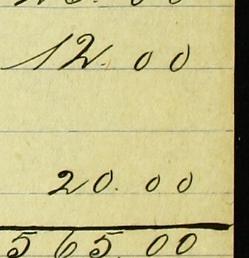 12.00
20.00
565.00